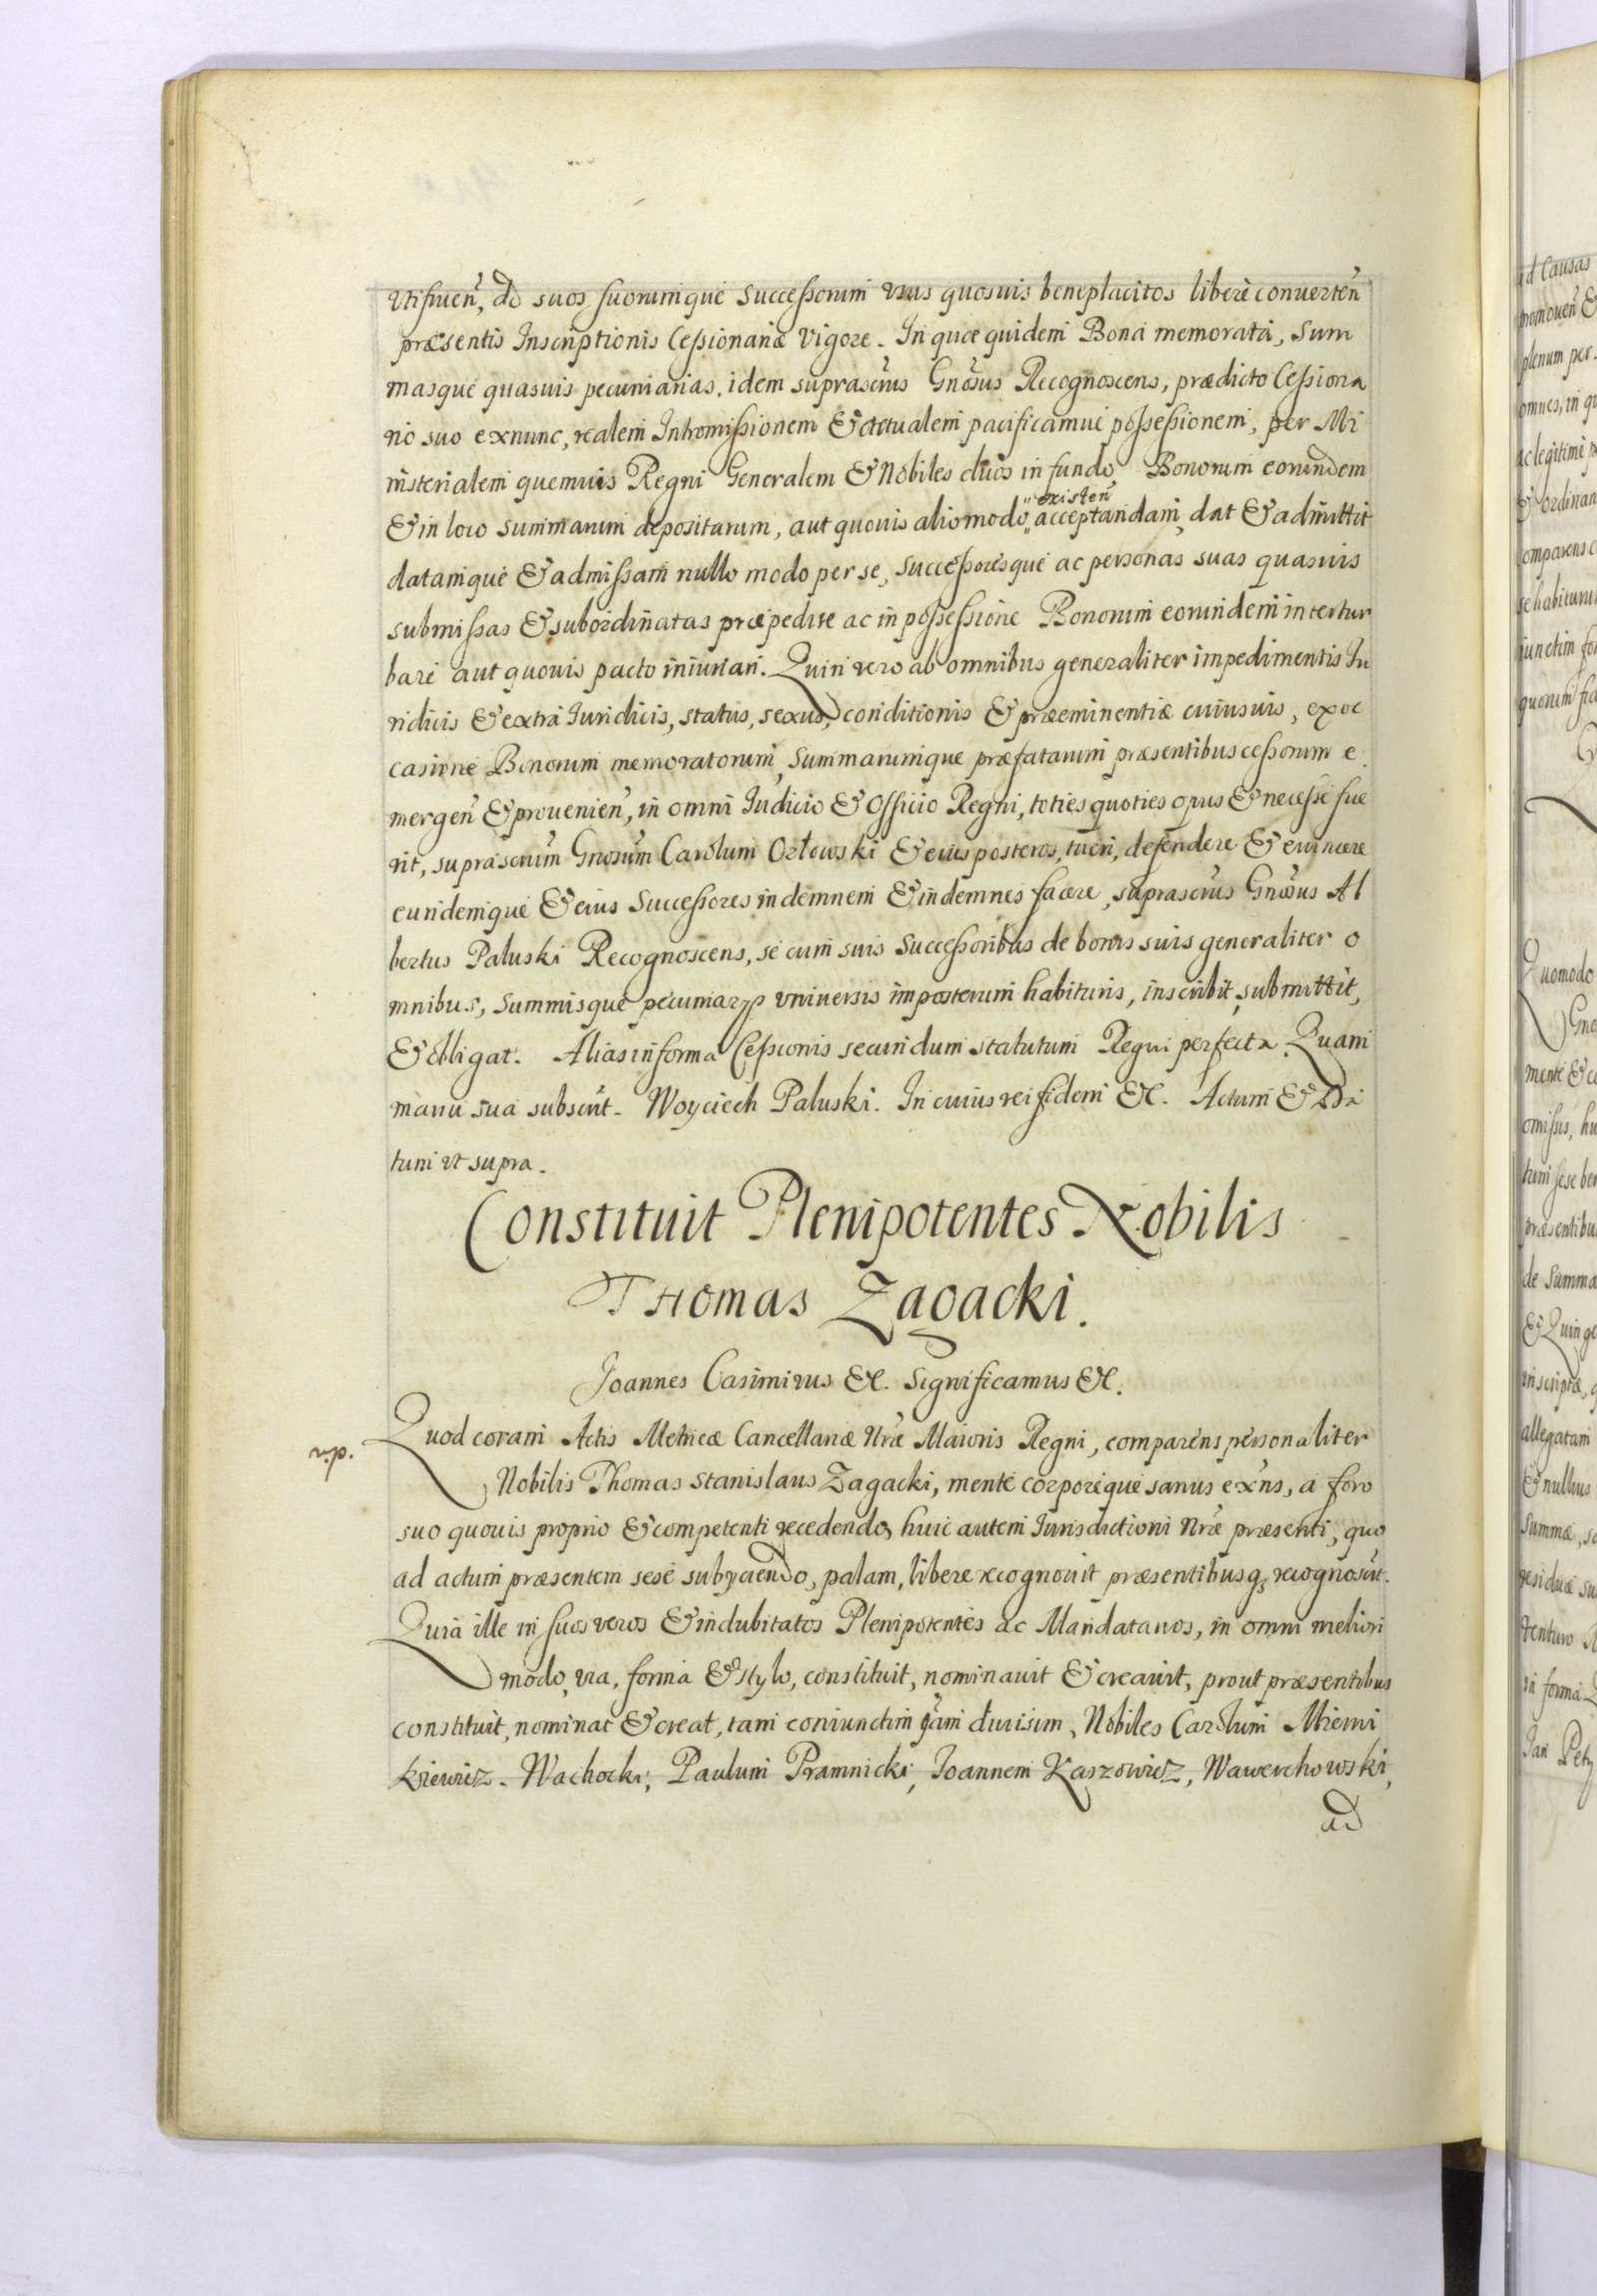 Vtifruen̄, ad suos suorumque Successorum usus quosuis beneplacitos liberè conuerten̄
præsentis Inscriptionis Cessionariæ Vigore. In quæ quidem Bona memorata, Sum
masque quasuis pecuniarias, idem suprascr̄tus Gn̄osus Recognoscens, prædicto Cessiona
rio suo exnunc, realem Intromissionem & actualem pacificamue possessionem, per Mi
nisterialem quemuis Regni Generalem & Nobiles duos in fundo Bonorum eorundem
existen̄
& in loco summarum depositarum, aut quouis alio modo „ acceptandam, dat & admittit
datamque & admissam nullo modo per se, Successoresque ac personas suas quasuis
submissas & subordinatas præpedire ac in possessione Bonorum eorundem intertur
bare aut quouis pacto iniuriari. Quin vero ab omnibus generaliter impedimentis Iu
ridicis & extra Iuridicis, status, sexus, conditionis & præeminentiæ cuiusuis, ex oc
casione Bonorum memoratorum, Summarumque præfatarum præsentibus cessorum e
mergen̄ & prouenien̄, in omni Iudicio & Officio Regni, toties quoties opus & necesse fue
rit, suprascr̄tum Gn̄osum Carolum Orłowski & eius posteros, tueri, defendere & euincere
eundemque & eius Successores indemnem & indemnes facere, suprascr̄tus Gn̄osus Al
bertus Paluski Recognoscens, se cum suis Successoribus de bonis suis generaliter o
mnibus, Summisque pecuniarijs vniuersis imposterum habituris, inscribit, submittit,
& obligat. Alias in forma Cessionis secundum statutum Regni perfecta. Quam
manu sua subscr̄t. Woyciech Paluski. In cuius rei fidem &c. Actum & Da
tum vt supra.
Constituit Plenipotentes Nobilis
Thomas Zagacki.
Joannes Casimirus &c. Significamus &c.
Quod coram Actis Metricæ Cancellariæ Nr̄æ Maioris Regni, comparens personaliter
Nobilis Thomas Stanislaus Zagacki, mente corporeque sanus ex̄ns, a foro
suo quouis proprio & competenti recedendo, huic autem Iurisdictioni Nr̄æ præsenti, quo
ad actum præsentem sese subijciendo, palam, libere recognouit præsentibusq; recognoscit.
Quia ille in suos veros & indubitatos Plenipotentes ac Mandatarios, in omni meliori
modo, via, forma & stylo, constituit, nominauit & creauit, prout præsentibus
constituit, nominat & creat, tam coniunctim q̄am diuisim, Nobiles Carolum Miemi
kiewicz. Wachocki, Paulum Pramnicki, Joannem Kaszowicz, Wawerchowski,
ad